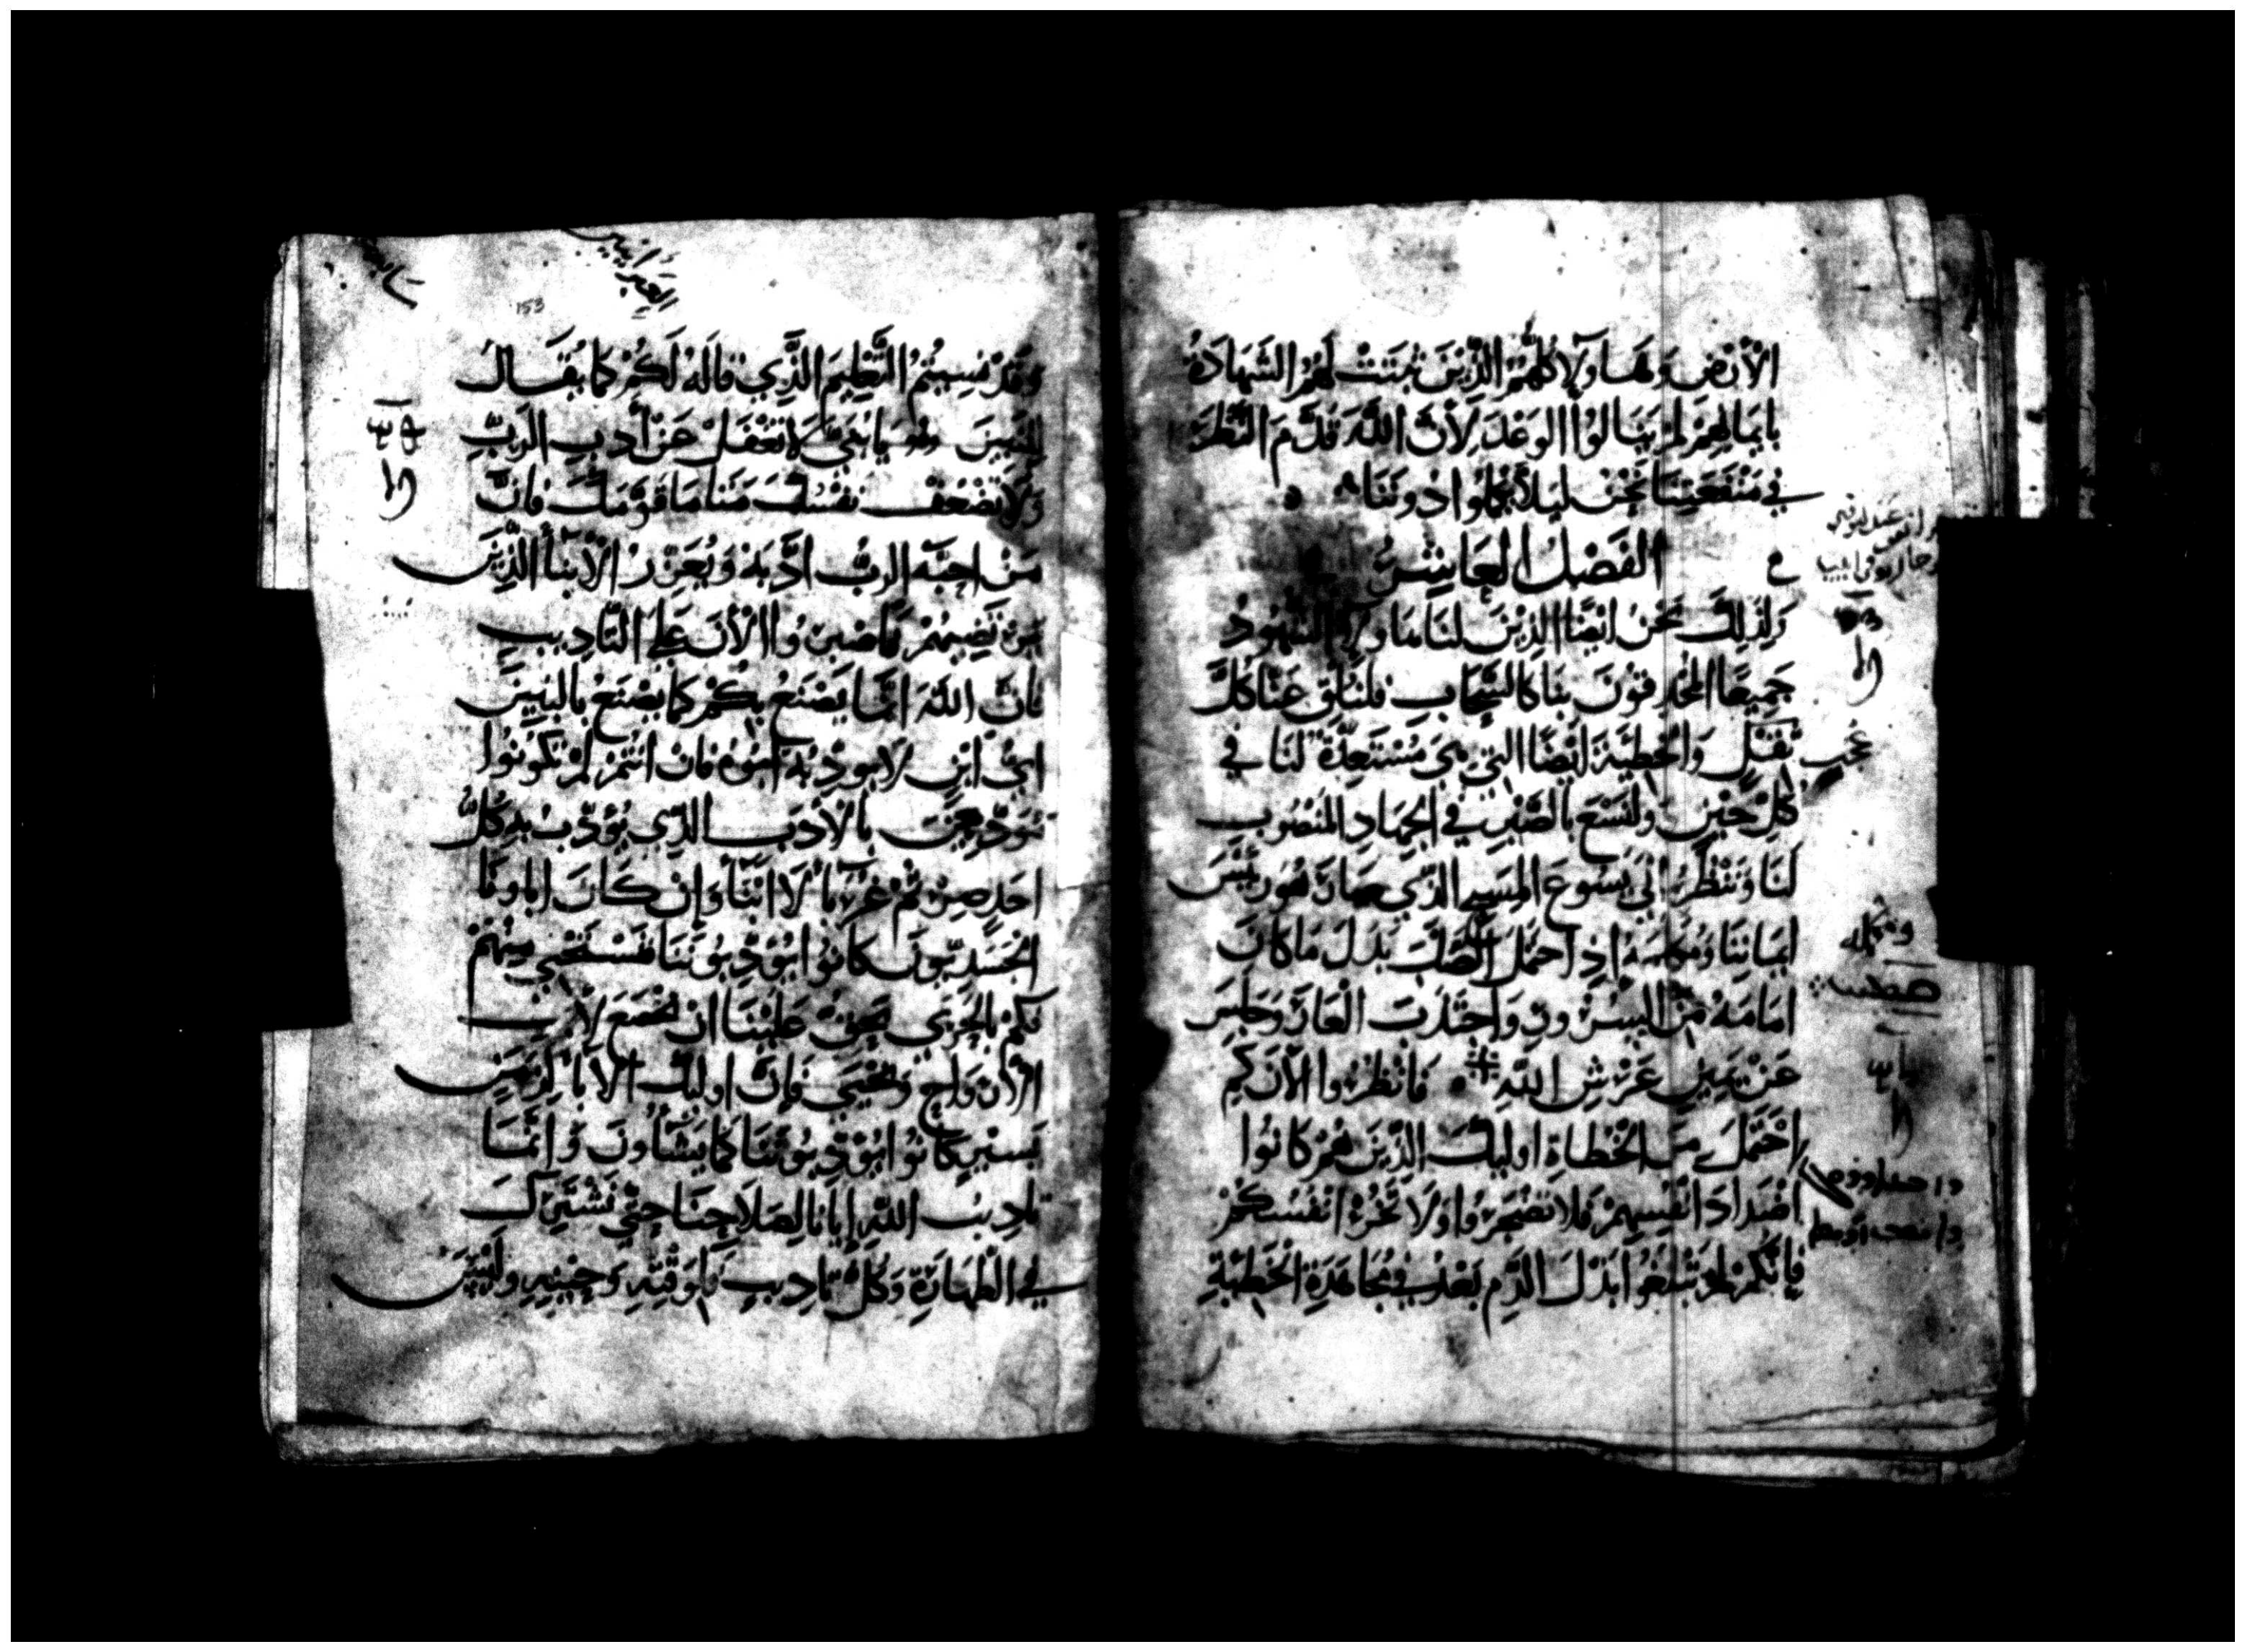 الْأَرْضِ وَهَاوُلَا كُلُّهُمُ الَّذِيْنَ ثَبَتَتْ لَهُمُ الشَّهَادَةُ
بِايمَانِهِمْ لَمْ يَنَالُوا الوَعْدَ لِأَنَّ اللَّهَ قَدَّمَ النَّظَرَ
في مَنْفَعَتِنَا نَحْنُ لِيَلَّا يَكْمُلُوا دُونَنَا
الفَصْلُ العَاشِرُ
وَلِذَلِكَ نَحْنُ ايْضًا الذِيْنَ لنَا هَاوُلَا الشُّهُودُ
جَمِيعًا المُحْدِقُونَ بِنَا كَالسَّحَابِ فَلْنُلْقِ عَنَّا كُلَّ
ثِقْلٍ وَالْخَطِيَّةَ ايْضًا التِي هِيَ مُسْتَعِدَّةٌ لَنَا في
كُلِّ حِيْنٍ وَلْنَسْعَ بِالصَّبْرِ في الجِهَادِ المَنْصُوبِ
لَنَا وَنَنْظُرُ إلَى يَسُوعَ المَسِيحِ الَّذِي صَارَ هُوَ رَئِيْسَ
ايمَانِنَا وَمُكَمِّلَهُ اذِ احْتَمَلَ الصَّلْبَ بَدَلَ مَا كَانَ
امَامَهُ مِنَ السُّرُورِ وَاحْتَمَلَ الْعَارَ وَجَلَسَ
عَنْ يَمِيْنِ عَرْشِ اللَّهِ فَانْظُرُوا الْآنَ كَمِ
احْتَمَلَ مِنَ الْخُطَاةِ اوليكَ الذِيْنَ هُمْ كَانُوا
اضْدَادَ انْفُسِهِمْ فَلَا تَضْجَرُوا وَلَا تَخُرْ انْفُسُكُمْ
فَإِنَّكُمْ لَمْ تَبْلُغُوا بَذْلَ الدَّمِ بَعْدُ في مُجَاهَدَةِ الْخَطِيَّةِ
153
وَقَدْ نَسِيتُمُ التَّعْلِيمَ الذِّي قالَهُ لَكُمْ كَمَا يُقَالُ
لِلْبَنِيْنَ يَا بُنَيَّ لَا تَغْفَلْ عَنْ أَدَبِ الرَّبِّ
وَلَا تَضْعُفْ نَفْسُكَ مَتَى مَا قَوَّمَكَ فَانَّ
مَنْ احَبَّهُ الرَبُّ ادَّبَهُ وَيُعَزِّرُ الْأَبْنَا الذِّيْنَ
فَاصْبِرُوا الْأَنَ عَلَى التَّادِيبِ
فَانَّ اللَّهَ انَّمَا يَصْنَعُ بِكُمْ كَمَا يَصْنَعُ بِالْبَنِيْنَ
ايُّ ابْنٍ لَا يُودِّبُهُ ابُوهُ فَانْ انْتُمْ لَمْ تَكُونُوا
بِالْأَدَبِ الذِّي يُؤَدَّبُ بِهِ كُلُّ
احَدٍ صِرْتُمْ غُرَبَا لَا ابْنَا وَإِنْ كَانَ ابَاونَا
الْجَسَدِيّونَ كَانُوا يُؤَدِّبُونَنَا فَنَسْتَحِي مِنْهُمْ
فَكَمْ بِالْحَرِي يَحِقُّ عَلَيْنَا انْ نَخْضَعَ لِأَبِ
الْأَرْوَاحِ وَنَحْيَى فَإِنَّ اوليكَ الْأَبَا لِزَمَنٍ
يَسِيْرٍ كَانُوا يُؤَدِّبُونَنَا كَمَا يَشَاوُنَ وَانَّمَا
تَادِيبُ اللَّهِ إِيَّانَا لِصَلَاحِنَا حَتَّى نَشْتَرِكَ
في الطَّهَارَةِ وَكُلُّ تَادِيبٍ في وَقْتِهِ وَحِيْنِهِ وَلَيْسَ